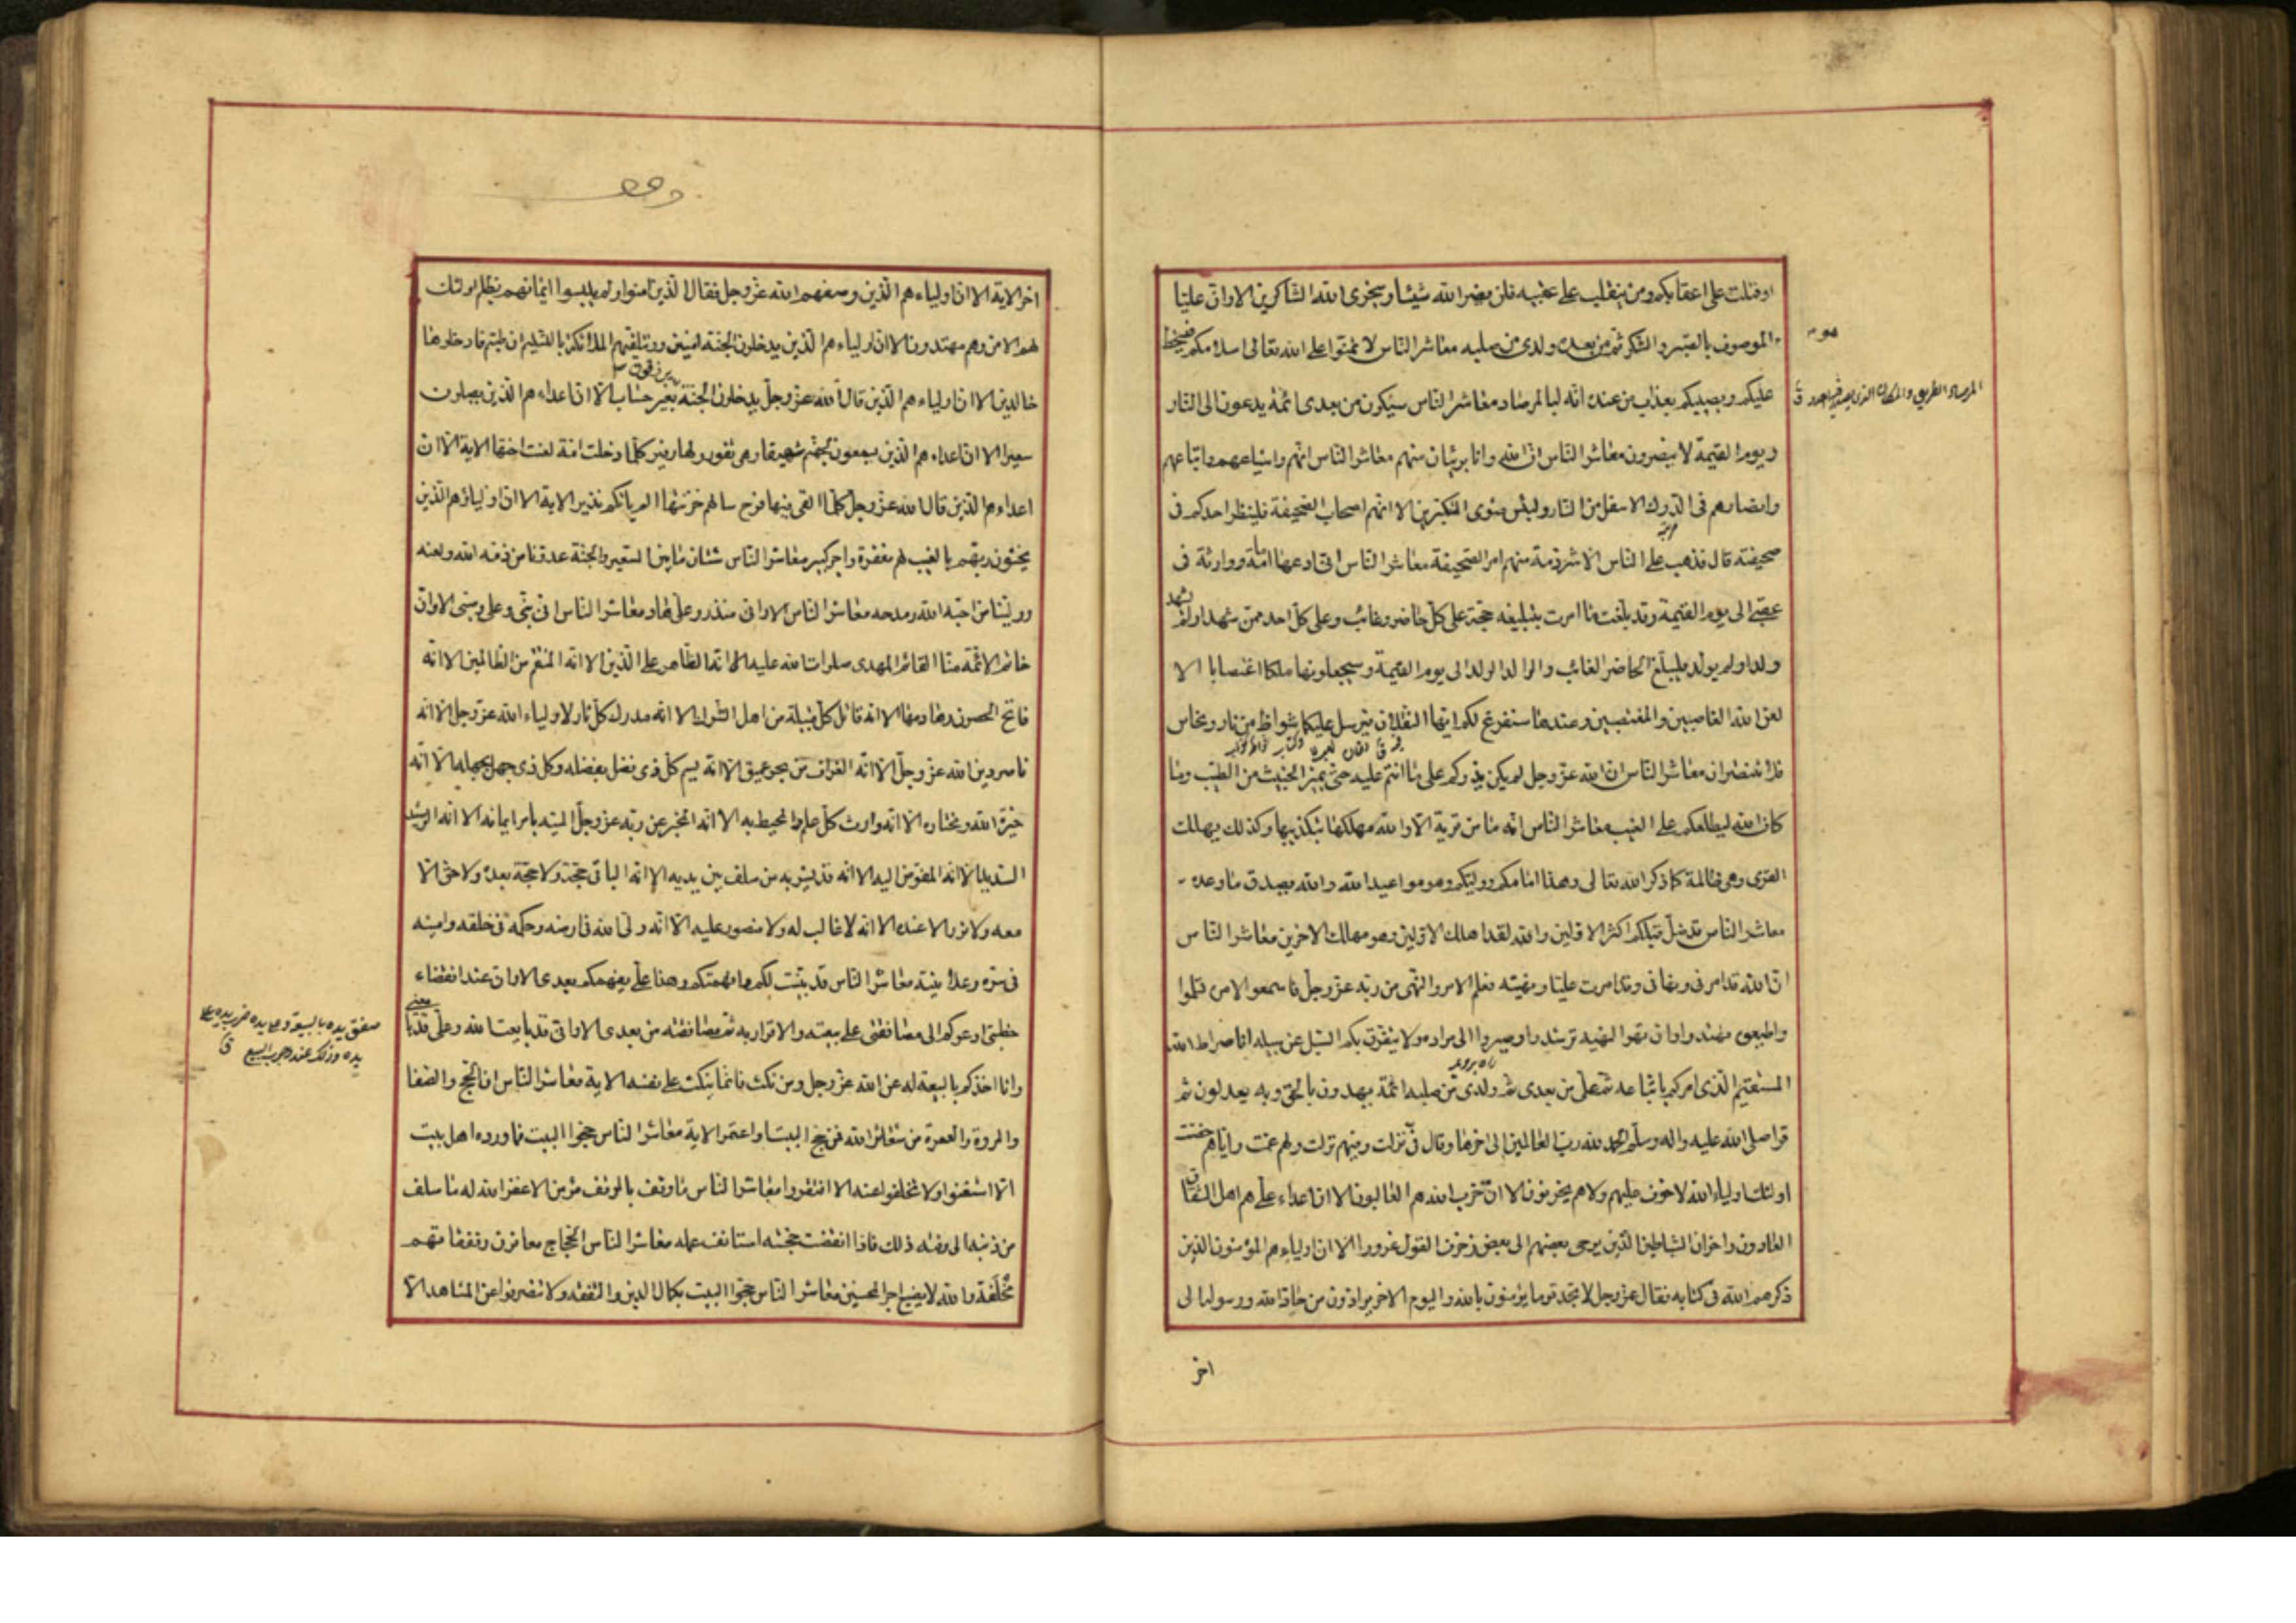 او قتلت على اعقابكم ومن ينقلب على عقبيه فلن يضر الله شيئا وسيجزى الله الشاكرين الا وان عليا
الموصوف بالصبر والشكر ثم من بعده ولدى من صلبه معاشر الناس لا تمنوا على الله تعالى اسلامكم فيسخط
عليكم ويصيبكم بعذاب من عنده انه لبالمرصاد معاشر الناس سيكون من بعدى ائمة يدعون الى النار
ويوم القيمة لا ينصرون معاشر الناس ان الله وانا بريئان منهم معاشر الناس انهم واشياعهم واتباعهم
وانصارهم فى الدرك الاسفل من النار ولبئس مثوى المتكبرين الا انهم اصحاب الصحيفة فلينظر احدكم فى
صحيفته قال فذهب على الناس الا شرذمة منهم امر الصحيفة معاشر الناس انى ادعها امامة ووراثة فى
عقبى الى يوم القيمة وقد بلغت ما امرت بتبليغه حجة على كل حاضر وغائب وعلى كل احد ممن شهد او لم يشهد
ولد او لم يولد فليبلغ الحاضر الغائب والوالد الولد الى يوم القيمة وسيجعلونها ملكا اغتصابا الا
لعن الله الغاصبين والمغتصبين وعندها سنفرغ لكم ايها الثقلان فيرسل عليكما شواظ من نار ونحاس
فلا تنتصران معاشر الناس ان الله عز وجل لم يكن يذركم على ما انتم عليه حتى يميز الخبيث من الطيب وما
كان الله ليطلعكم على الغيب معاشر الناس انه ما من قرية الا والله مهلكها بتكذيبها وكذلك يهلك
القرى وهى ظالمة كما ذكر الله تعالى وهذا امامكم ووليكم وهو مواعيد الله والله يصدق ما وعده
معاشر الناس قد ضل قبلكم اكثر الاولين والله لقد اهلك الاولين وهو مهلك الاخرين معاشر الناس
ان الله قد امرنى ونهانى وقد امرت عليا ونهيته فعلم الامر والنهى من ربه عز وجل فاسمعوا لامره تسلموا
واطيعوه تهتدوا وانتهوا لنهيه ترشدوا وصيروا الى مراده ولا يتفرق بكم السبل عن سبيله انا صراط الله
المستقيم الذى امركم باتباعه ثم على من بعدى ثم ولدى من صلبه ائمة يهدون بالحق وبه يعدلون ثم
قرا صلى الله عليه واله وسلم الحمد لله رب العالمين الى اخرها وقال فى نزلت وفيهم نزلت ولهم عمت واياهم خصت
اولئك اولياء الله لا خوف عليهم ولا هم يحزنون الا ان حزب الله هم الغالبون الا ان اعداء على هم اهل الشقاق
العادون واخوان الشياطين الذين يوحى بعضهم الى بعض زخرف القول غرورا الا ان اولياءهم المؤمنون الذين
ذكرهم الله فى كتابه فقال عز وجل لا تجد قوما يؤمنون بالله واليوم الاخر يوادون من حاد الله ورسوله الى
اخر
المرصاد الطريق والمكان الذى يرصد فيه العدو ق
اخر الاية الا ان اولياءهم الذين وصفهم الله عز وجل فقال الذين امنوا ولم يلبسوا ايمانهم بظلم اولئك
لهم الامن وهم مهتدون الا ان اولياءهم الذين يدخلون الجنة امنين وتتلقيهم الملائكة بالتسليم ان طبتم فادخلوها
خالدين الا ان اولياءهم الذين قال الله عز وجل يدخلون الجنة يرزقون بغير حساب الا ان اعداءهم الذين يصلون
سعيرا الا ان اعداءهم الذين يسمعون لجهنم شهيقا وهى تفور ولها زفير كلما دخلت امة لعنت اختها الاية الا ان
اعداءهم الذين قال الله عز وجل كلما القى فيها فوج سالهم خزنتها الم ياتكم نذير الاية الا ان اولياءهم الذين
يخشون ربهم بالغيب لهم مغفرة واجر كبير معاشر الناس شتان ما بين السعير والجنة عدونا من ذمه الله ولعنه
وولينا من احبه الله ومدحه معاشر الناس الا وانى منذر وعلى هاد معاشر الناس انى نبى وعلى وصيى الا وان
خاتم الائمة منا القائم المهدى صلوات الله عليه الا انه الظاهر على الدين الا انه المنتقم من الظالمين الا انه
فاتح الحصون وهادمها الا انه قاتل كل قبيلة من اهل الشرك الا انه مدرك كل ثار لاولياء الله عز وجل الا انه
ناصر دين الله عز وجل الا انه الغراف من بحر عميق الا انه يسم كل ذى فضل بفضله وكل ذى جهل بجهله الا انه
خيرة الله ومختاره الا انه وارث كل علم والمحيط به الا انه المخبر عن ربه عز وجل المنبه بامر ايمانه الا انه الرشيد
السديد الا انه المفوض اليه الا انه قد بشر به من سلف بين يديه الا انه الباقى حجة ولا حجة بعده ولا حق الا
معه ولا نور الا عنده الا انه لا غالب له ولا منصور عليه الا انه ولى الله فى ارضه وحكمه فى خلقه وامينه
فى سره وعلانيته معاشر الناس قد بينت لكم وافهمتكم وهذا على يفهمكم بعدى الا وان عند انقضاء
خطبتى ادعوكم الى مصافقتى على بيعته والاقرار به ثم مصافقته من بعدى الا وانى قد بايعت الله وعلى قد بايعنى
وانا اخذكم بالبيعة له عن الله عز وجل ومن نكث فانما ينكث على نفسه الاية معاشر الناس ان الحج والصفا
والمروة والعمرة من شعائر الله فمن حج البيت او اعتمر الاية معاشر الناس حجوا البيت فما ورده اهل بيت
الا استغنوا ولا تخلفوا عنه الا افتقروا معاشر الناس ما وقف بالموقف مؤمن الا غفر الله له ما سلف
من ذنبه الى وقته ذلك فاذا انقضت حجته استانف عمله معاشر الناس الحجاج معانون ونفقاتهم
مخلفة والله لا يضيع اجر المحسنين معاشر الناس حجوا البيت بكمال الدين والتفقه ولا تنصرفوا عن المشاهد الا
صفق يده بالبيعة وعلى يده ضرب يده على
يده وذلك عند وجوب البيع ق